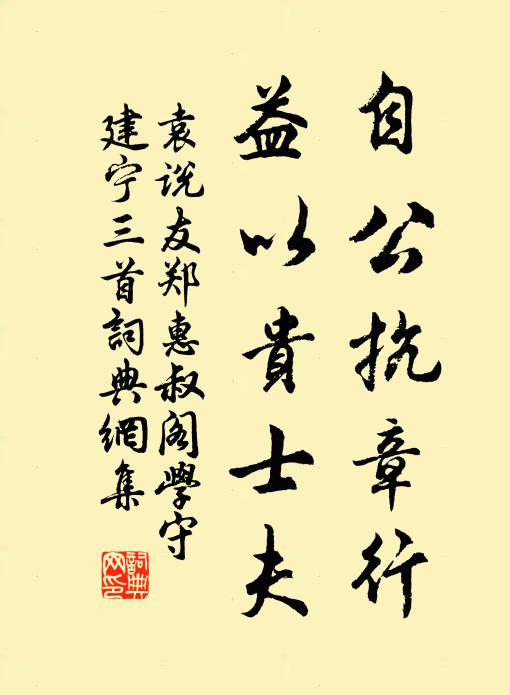 自公抗章行
益以貴士夫
袁说友郑惠叔阁學守
建宁三首詞典網集
詞典网印